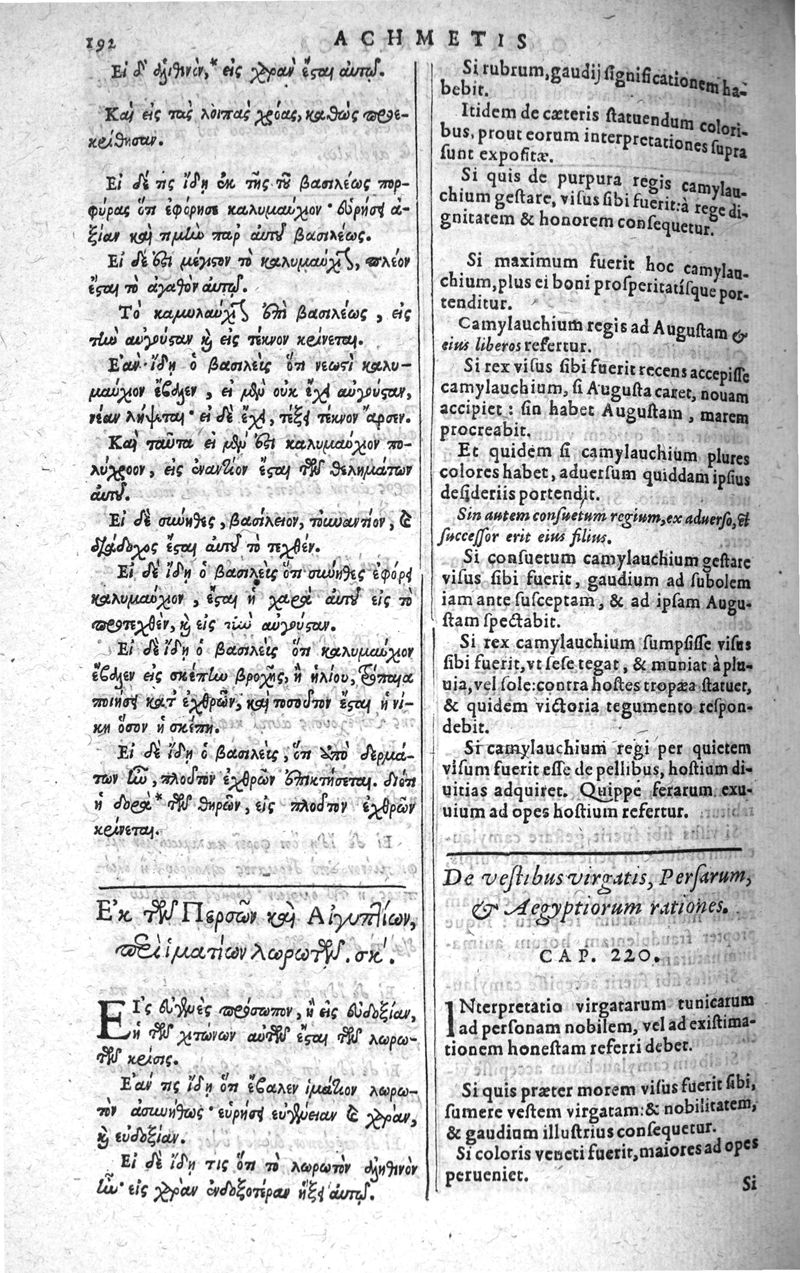 192 ACHMETIS
Εἰ δ' ἀληθινὸν,* εἰς χαρὰν ἔσται αὐτῷ.
Καὶ εἰς τὰς λοιπὰς χρόας, καθὼς προε-
κρίθησαν.
Εἰ δέ τις ἴδῃ ἐκ τῆς τοῦ βασιλέως πορ-
φύρας ὅτι ἐφόρησε καλυμαύχιον· εὑρήσει ἀ-
ξίαν καὶ τιμὴν παρ' αὐτοῦ βασιλέως.
Εἰ δέ ἐστι μέγιστον τὸ καλυμαύχιον, πλέον
ἔσται τὸ ἀγαθὸν αὐτῷ.
Τὸ καμωλαύχιον ἐπὶ βασιλέως, εἰς
τὴν αὐγούσταν καὶ εἰς τέκνον κρίνεται.
Ἐὰν ἴδῃ ὁ βασιλεὺς ὅτι νεωστὶ καλυ-
μαύχιον ἔβαλεν, εἰ μὲν οὐκ ἔχει αὐγούσταν,
νέαν λήψεται· εἰ δὲ ἔχει, τέξει τέκνον ἄρσεν.
Καὶ ταῦτα εἰ μέν ἐστι καλυμαύχιον πο-
λύχροον, εἰς ἐναντίον ἔσται τῶν θελημάτων
αὐτοῦ.
Εἰ δὲ σύνηθες, βασίλειον, τοὐναντίον, καὶ
διάδοχος ἔσται αὐτοῦ τὸ τεχθέν.
Εἰ δὲ ἴδῃ ὁ βασιλεὺς ὅτι σύνηθες ἐφόρει
καλυμαύχιον, ἔσται ἡ χαρὰ αὐτοῦ εἰς τὸ
προτεχθὲν, καὶ εἰς τὴν αὐγούσταν.
Εἰ δὲ ἴδῃ ὁ βασιλεὺς ὅτι καλυμαύχιον
ἔβαλεν εἰς σκέπην βροχῆς, ἢ ἡλίου, τρόπαια
ποιήσει κατ' ἐχθρῶν, καὶ τοσοῦτον ἔσται ἡ νί-
κη ὅσον ἡ σκέπη.
Εἰ δὲ ἴδῃ ὁ βασιλεὺς, ὅτι ὑπὸ δερμά-
των ἦν, πλοῦτον ἐχθρῶν ἐπικτήσεται. διότι
ἡ δορὰ* τῶν θηρῶν, εἰς πλοῦτον ἐχθρῶν
κρίνεται.
Ἐκ τῶν Περσῶν καὶ Αἰγυπτίων,
περὶ ἱματίων λωρωτῶν. σκ'.
ΕἸς εὐγενὲς πρόσωπον, ἢ εἰς εὐδοξίαν,
ἡ τῶν χιτώνων αὐτῶν ἔσται τῶν λωρω-
τῶν κρίσις.
Ἐάν τις ἴδῃ ὅτι ἔβαλεν ἱμάτιον λωρω-
τὸν ἀσυνήθως· εὑρήσει εὐγένειαν καὶ χαρὰν,
καὶ εὐδοξίαν.
Εἰ δὲ ἴδῃ τις ὅτι τὸ λωρωτὸν ἀληθινὸν
ἦν· εἰς χαρὰν ἐνδοξοτέραν ἥξει αὐτῷ.
Si rubrum, gaudij significationem ha-
bebit.
Itidem de cæteris statuendum colori-
bus, prout eorum interpretationes supra
sunt expositæ.
Si quis de purpura regis camylau-
chium gestare, visus sibi fuerit: à rege di-
gnitatem & honorem consequetur.
Si maximum fuerit hoc camylau-
chium, plus ei boni prosperitatísque por-
tenditur.
Camylauchium regis ad Augustam &
eius liberos refertur.
Si rex visus sibi fuerit recens accepisse
camylauchium, si Augusta caret, nouam
accipiet: sin habet Augustam, marem
procreabit.
Et quidem si camylauchium plures
colores habet, aduersum quiddam ipsius
desideriis portendit.
Sin autem consuetum regium, ex aduerso, &
successor erit eius filius.
Si consuetum camylauchium gestare
visus sibi fuerit, gaudium ad subolem
iam ante susceptam, & ad ipsam Augu-
stam spectabit.
Si rex camylauchium sumpsisse visus
sibi fuerit, vt sese tegat, & muniat à plu-
uia, vel sole: contra hostes tropæa statuet,
& quidem victoria tegumento respon-
debit.
Si camylauchium regi per quietem
visum fuerit esse de pellibus, hostium di-
uitias adquiret. Quippe ferarum exu-
uium ad opes hostium refertur.
De vestibus virgatis, Persarum,
& Aegyptiorum rationes.
CAP. 220.
INterpretatio virgatarum tunicarum
ad personam nobilem, vel ad existima-
tionem honestam referri debet.
Si quis præter morem visus fuerit sibi,
sumere vestem virgatam: & nobilitatem,
& gaudium illustrius consequetur.
Si coloris veneti fuerit, maiores ad opes
perueniet.
Si